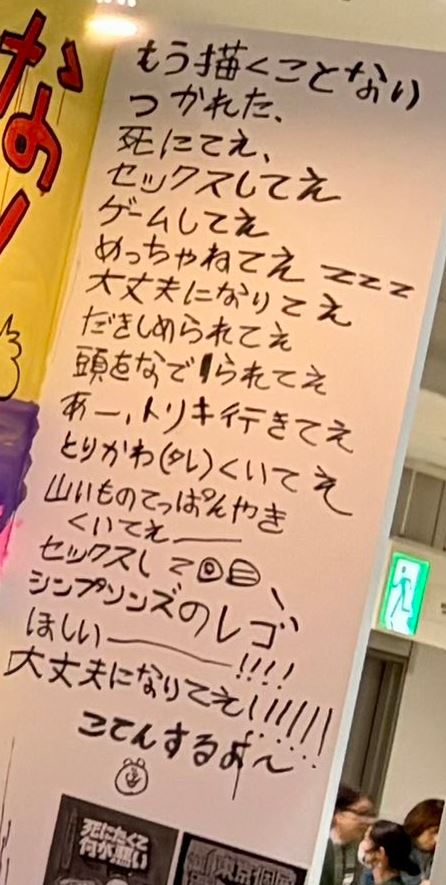 な!
もう描くことない
つかれた、
死にてえ、
セックスしてえ
ゲームしてえ
めっちゃねてえ zzz
大丈夫になりてえ
だきしめられてえ
頭をなでられてえ
あー、トリキ行きてえ
とりかわ(タレ)くいてえ
山いものてっぱんやき
くいてえ――
セックスして
シンプソンズのレゴ
ほしい――!!!!
大丈夫になりてえ!!!!!!!
こてんするよ〜
死にたくて
何が悪い
東京個展